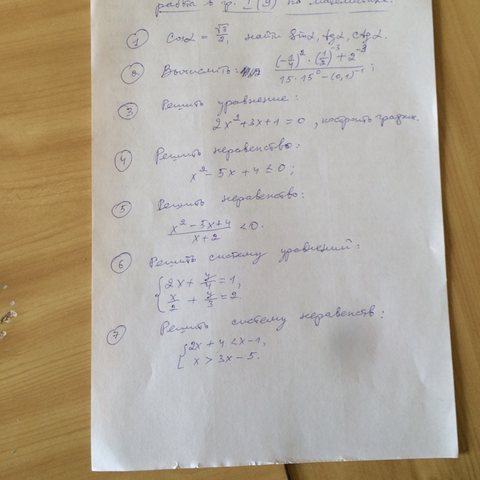 работа в гр. I (9) по математике.
① Cosα = √3/2, найти Sinα, tgα, ctgα.
② Вычислить: ((-1/4)² · (1/2)⁻³ + 2⁻³)/(15 · 15⁰ - (0,1)⁻¹);
③ Решить уравнение:
2x² + 3x + 1 = 0, построить график.
④ Решить неравенство:
x² - 5x + 4 ≤ 0;
⑤ Решить неравенство:
(x² - 5x + 4)/(x + 2) < 0.
⑥ Решить систему уравнений:
{ 2x + y/4 = 1,
x/2 + y/3 = 2.
⑦ Решить систему неравенств:
{ 2x + 4 < x - 1,
x > 3x - 5.